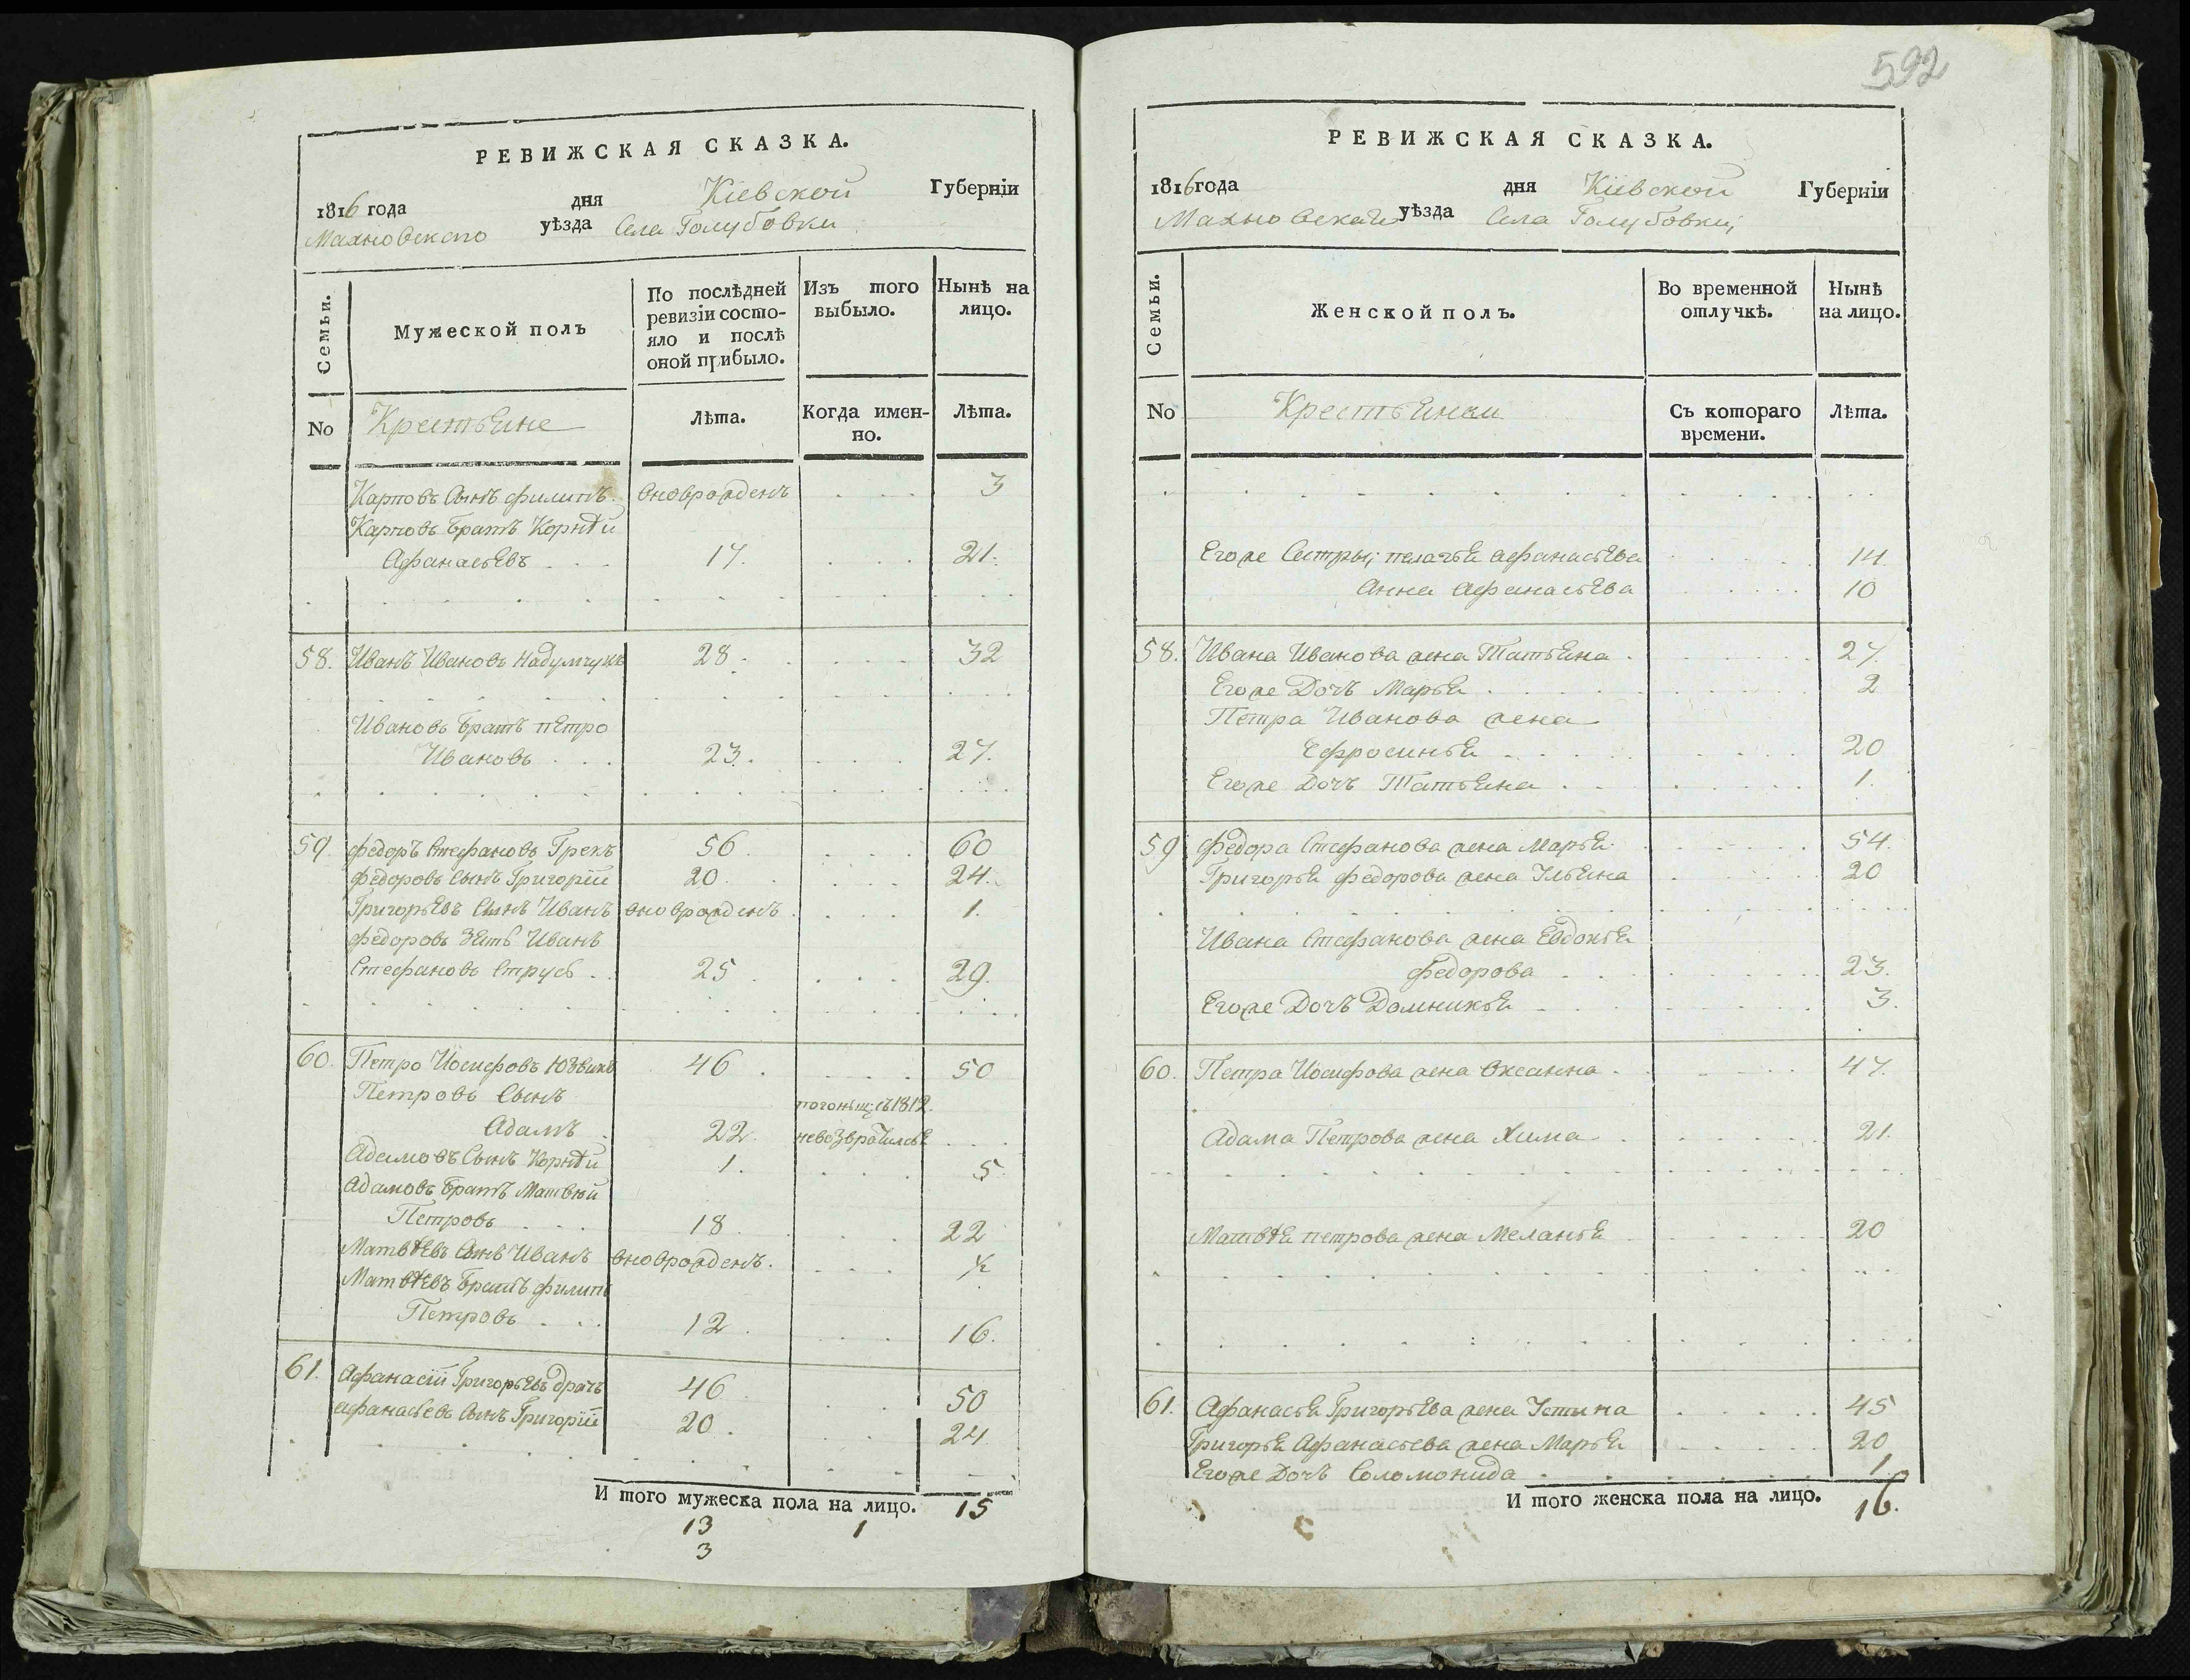 РЕВИЖСКАЯ СКАЗКА.
1816 года дня Кіевской Губерніи
Махновского уѣзда Села Голубовки
Семьи. Мужеской полъ По послѣдней ревизіи состояло и послѣ оной прибыло. Изъ того выбыло. Нынѣ на лицо.
No Крестьяне Лѣта. Когда именно. Лѣта.
Карповъ Сынъ филипъ. вновърожденъ 3
Карповъ братъ Корнѣй
Афанасьевъ 17. 21.
58. Иванъ Ивановъ Надумчукъ 28. 32
Ивановъ братъ петро
Ивановъ 23. 27.
59. федоръ Стефановъ Грекъ 56. 60
федоровъ Сынъ Григорій 20. 24.
Григорьевъ Сынъ Иванъ вновърожденъ. 1.
федоровъ Зять Иванъ
Стефановъ Струсь 25 29.
60. Петро Иосифовъ Юзвикъ 46. 50
Петровъ Сынъ погоньщ: съ1812.
Адамъ 22. невозвратился
Адамовъ Сынъ Корнѣй 1. 5.
Адамовъ братъ Матвѣй
Петровъ 18 22
Матвѣевъ Сынъ Иванъ вновърожденъ. ½
Матвѣевъ братъ филипъ
Петровъ 12. 16.
61. Афанасій Григорьевъ драчъ 46 50
афанасьевъ Сынъ Григорій 20. 24.
И того мужеска пола на лицо. 15
13 1
3
592
РЕВИЖСКАЯ СКАЗКА.
1816 года дня Кіевской Губерніи
Махновскаго уѣзда Села Голубовки;
Семьи. Женской полъ. Во временной отлучкѣ. Нынѣ на лицо.
No Крестьянки Съ котораго времени. Лѣта.
Егоже Сестры; пелагья афанасьева 14.
Анна Афанасьева 10
58. Ивана Иванова жена Татьяна 27.
Егоже Дочъ Марья 2
Петра Иванова жена
Ефросинья 20
Егоже Дочъ Татьяна 1.
59 Федора Стефанова жена Марья 54.
Григорья федорова жена Ульяна 20
Ивана Стефанова жена Евдокья
федорова 23.
Егоже Дочъ Домникья 3.
60. Петра Иосифова жена Оксанна 47.
Адама Петрова жена Хима 21.
Матвѣя петрова жена Меланья 20
61. Афанасья Григорьева жена Устина 45
Григорья Афанасьева жена Марья 20
Егоже Дочъ Соломонида 1
И того женска пола на лицо. 16.